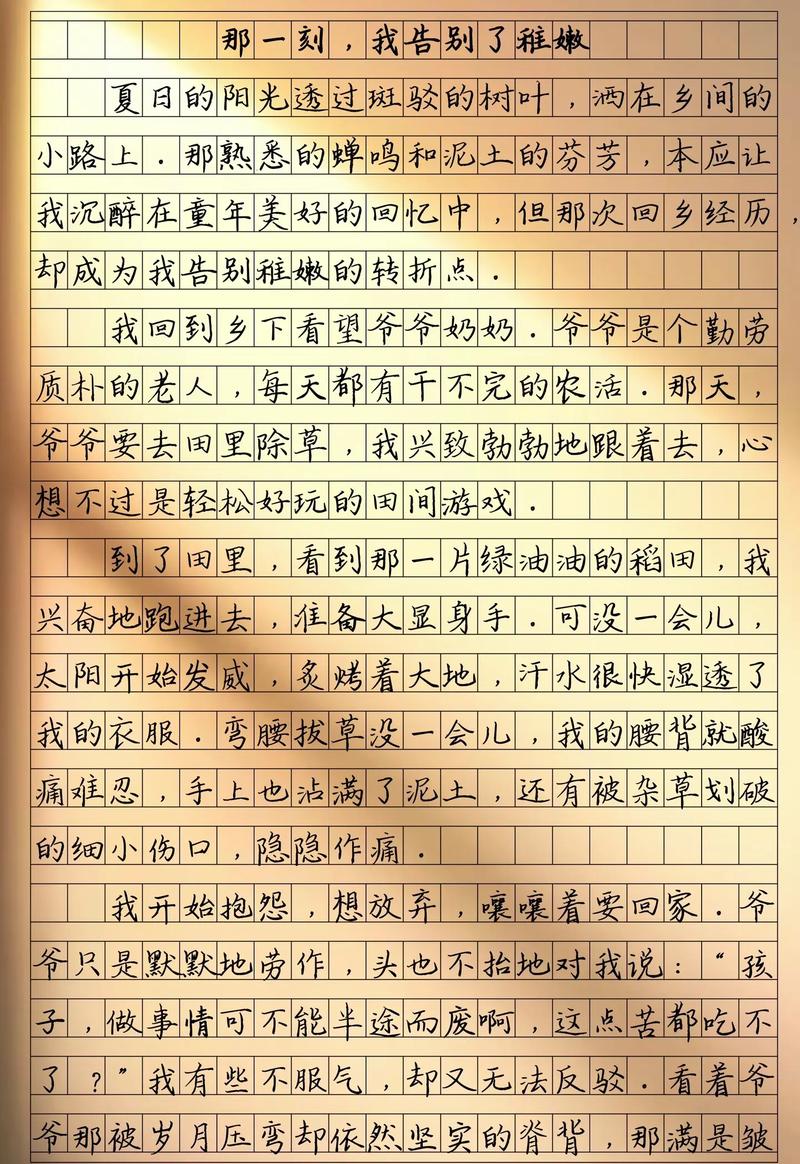 那一刻,我告别了稚嫩
夏日的阳光透过斑驳的树叶,洒在乡间的
小路上.那熟悉的蝉鸣和泥土的芬芳,本应让
我沉醉在童年美好的回忆中,但那次回乡经历,
却成为我告别稚嫩的转折点.
我回到乡下看望爷爷奶奶.爷爷是个勤劳
质朴的老人,每天都有干不完的农活.那天,
爷爷要去田里除草,我兴致勃勃地跟着去,心
想不过是轻松好玩的田间游戏.
到了田里,看到那一片绿油油的稻田,我
兴奋地跑进去,准备大显身手.可没一会儿,
太阳开始发威,炙烤着大地,汗水很快湿透了
我的衣服.弯腰拔草没一会儿,我的腰背就酸
痛难忍,手上也沾满了泥土,还有被杂草划破
的细小伤口,隐隐作痛.
我开始抱怨,想放弃,嚷嚷着要回家.爷
爷只是默默地劳作,头也不抬地对我说:“孩
子,做事情可不能半途而废啊,这点苦都吃不
了?”我有些不服气,却又无法反驳.看着爷
爷那被岁月压弯却依然坚实的脊背,那满是皱